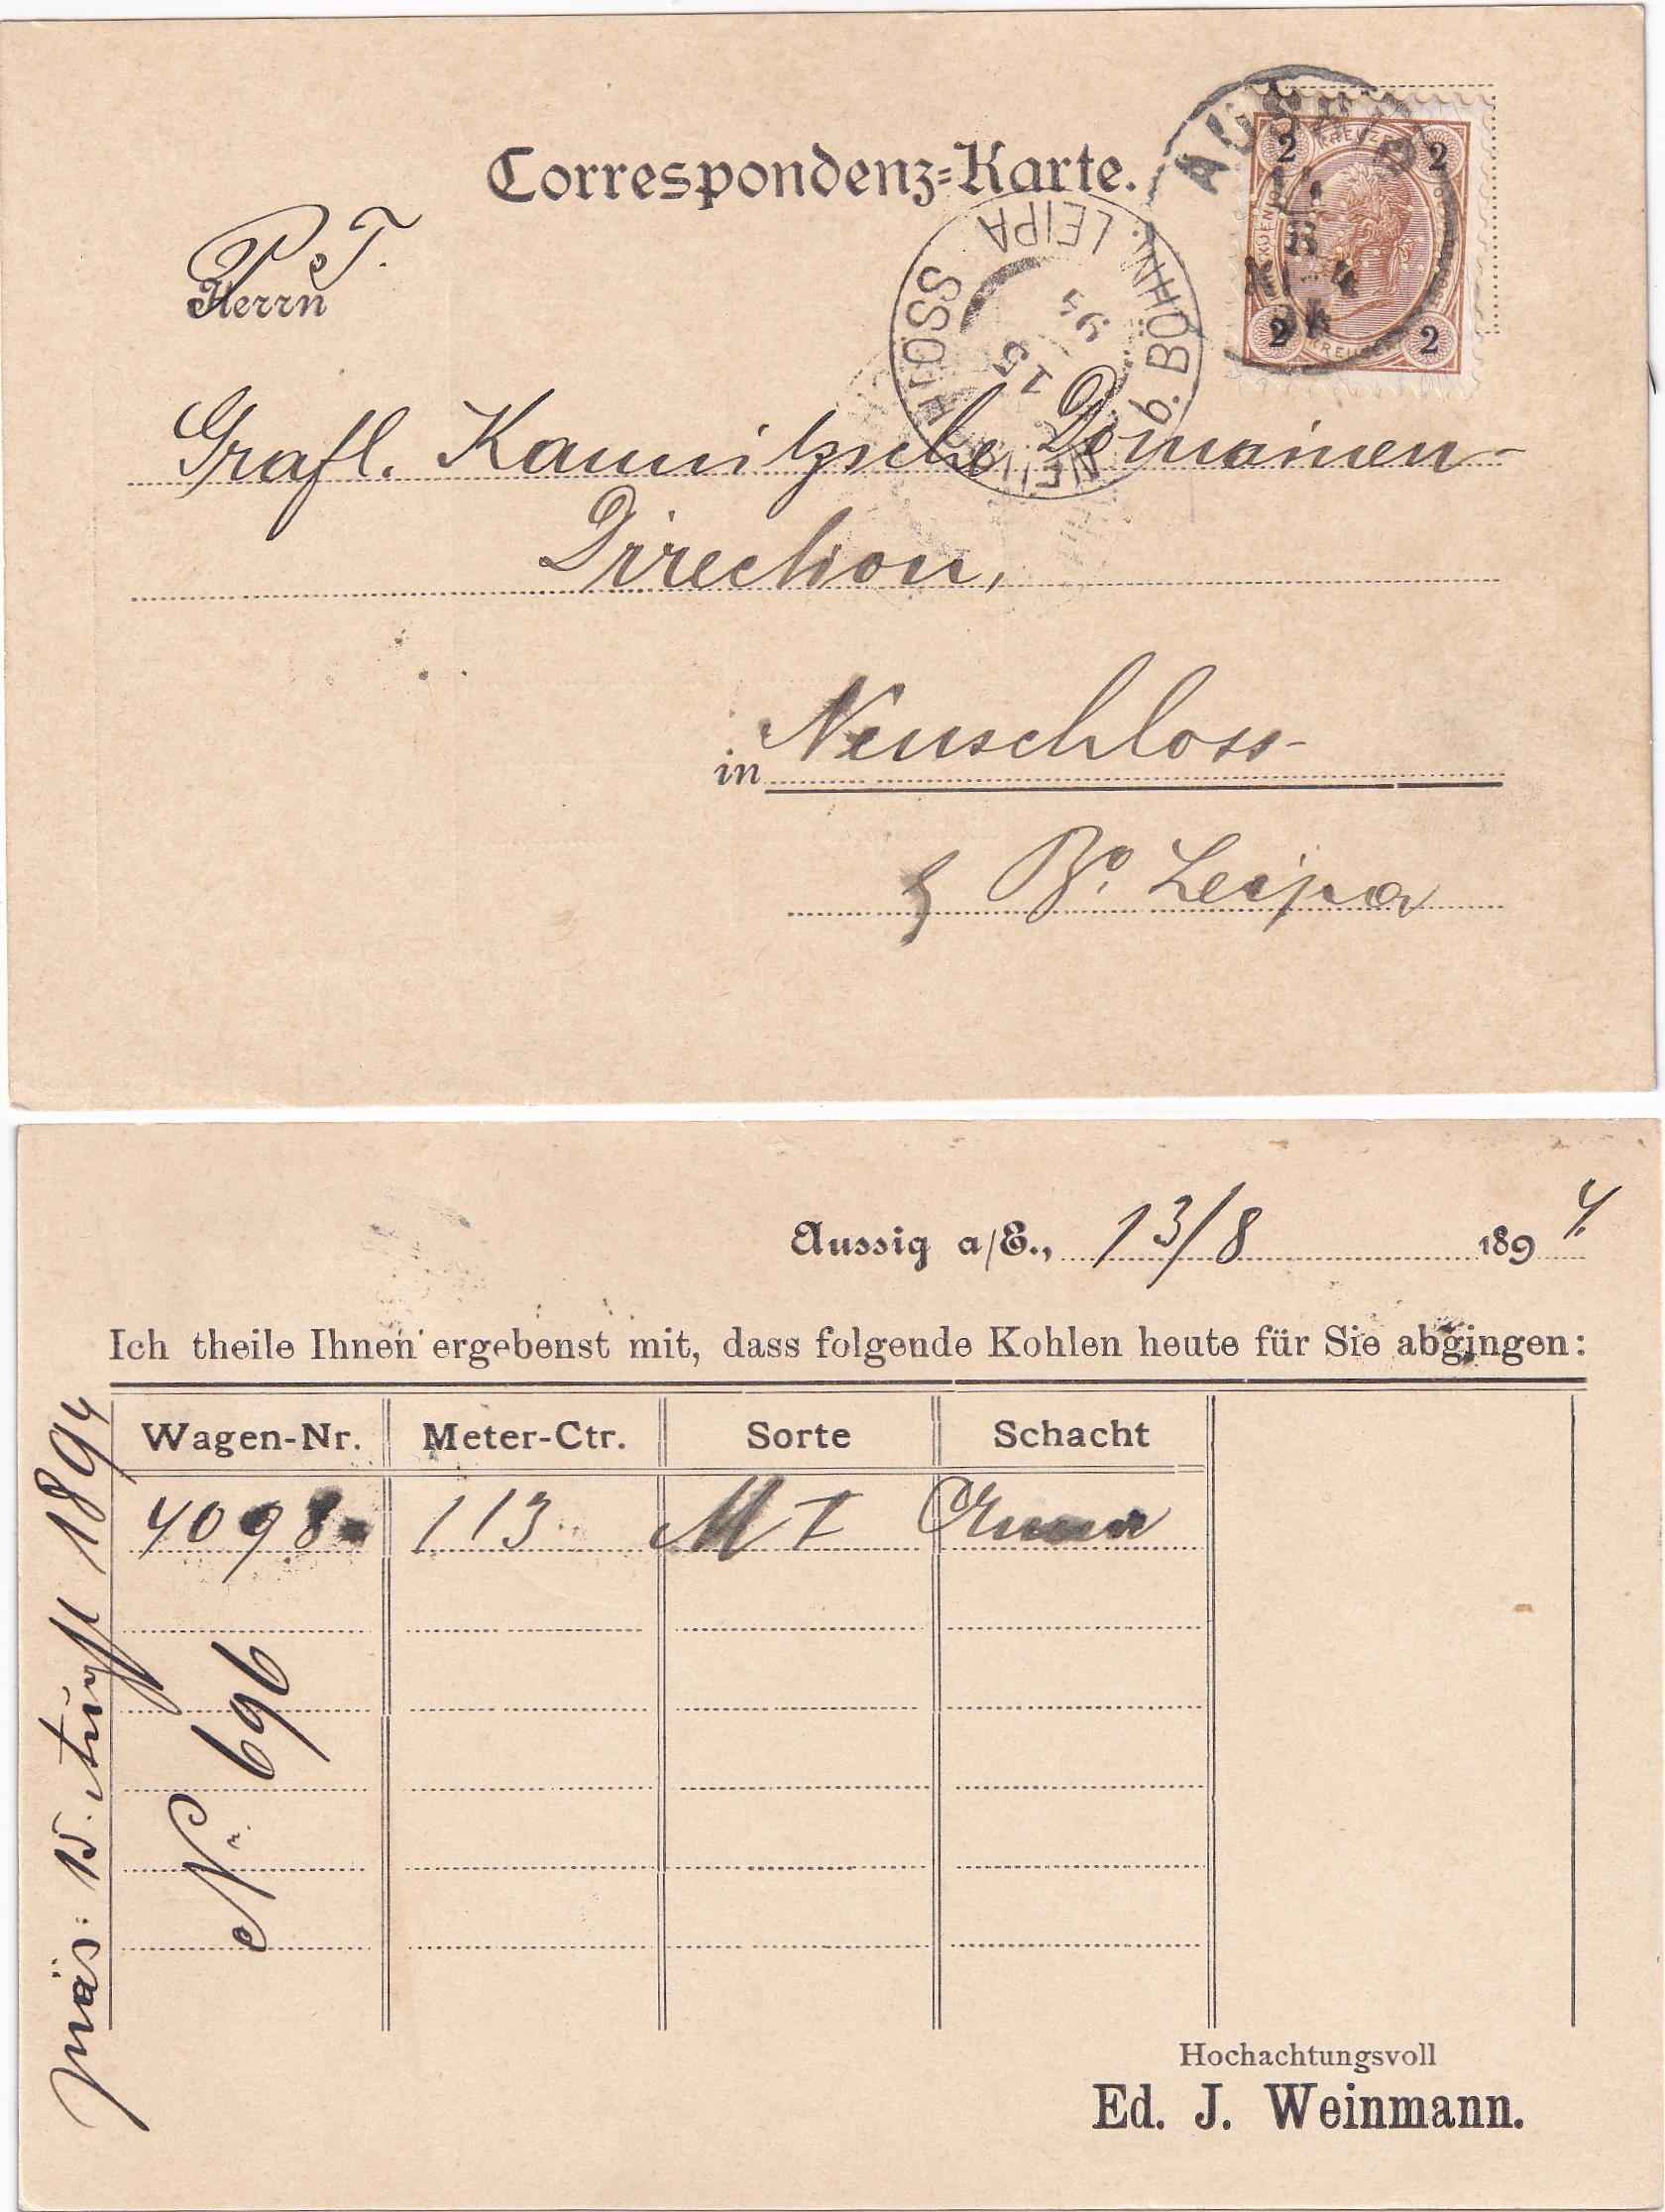 Correspondenz-Karte.
P. T.
Herrn
AUSSIG
2 KREUZER 2
2 KREUZER 2
NEUSCHLOSS b. BÖHM. LEIPA
15
Gräfl. Kaunitzsche Domainen-
Direction,
in Neuschloss
Bö. Leipa
Aussig a/E., 13/8 1894.
Ich theile Ihnen ergebenst mit, dass folgende Kohlen heute für Sie abgingen:
Wagen-Nr. Meter-Ctr. Sorte Schacht
4098 113 M I
präs: 15. August 1894
Nr. 696
Hochachtungsvoll
Ed. J. Weinmann.